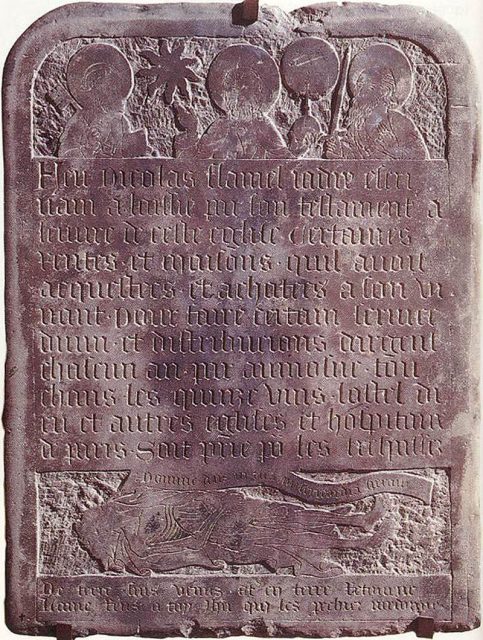 Feu nicolas flamel iadis escri
uain a laissie par son testament a
leuure de ceste eglise Certaines
rentes et maisons quil auoit
acquestees et achatees a son vi
uant pour faire certain seruice
diuin et distribucions dargent
chascun an par aumosne tou
chans les quinze vins lostel di
eu et autres eglises et hospitaux
a paris Soit prie po les trespassez
Domine deus in tua misericordia
De terre suis venus et en terre retourne
Lame rens a toy Ihu qui les pechiez pardonne